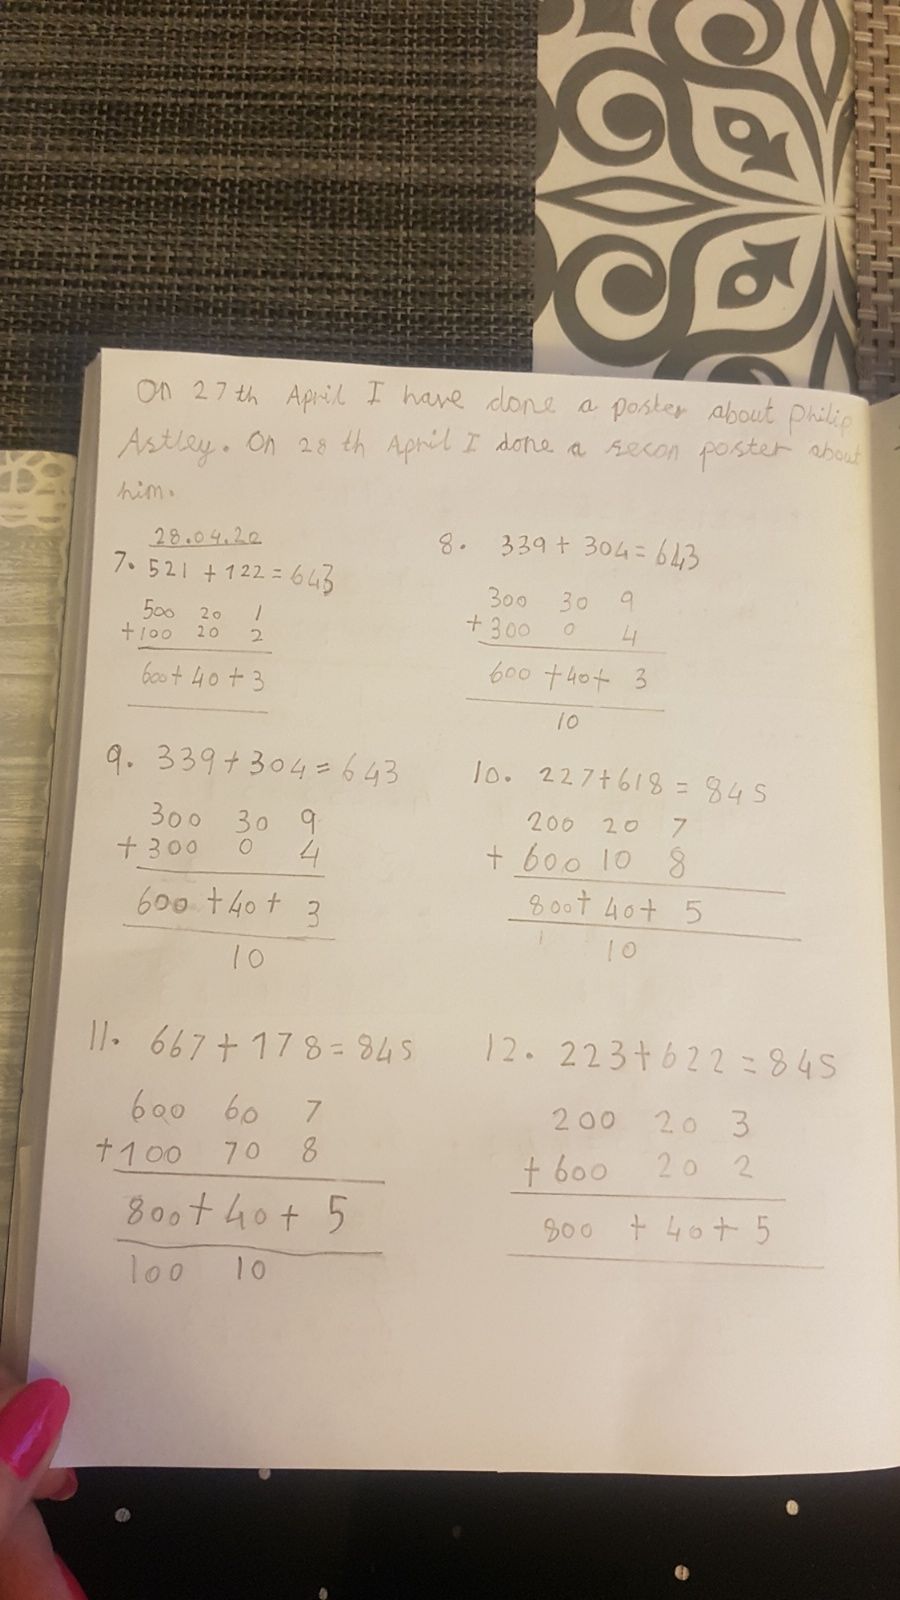 On 27th April I have done a poster about Philip
Astley. On 28 th April I done a secon poster about
him.
28.04.20
7. 521 + 122 = 643
500 20 1
+100 20 2
600+ 40 + 3
8. 339 + 304 = 643
300 30 9
+300 0 4
600 +40+ 3
10
9. 339 + 304 = 643
300 30 9
+300 0 4
600 +40+ 3
10
10. 227+618 = 845
200 20 7
+ 600 10 8
800+ 40+ 5
10
11. 667 + 178 = 845
600 60 7
+100 70 8
800+ 40 + 5
100 10
12. 223+622 = 845
200 20 3
+600 20 2
800 + 40+ 5